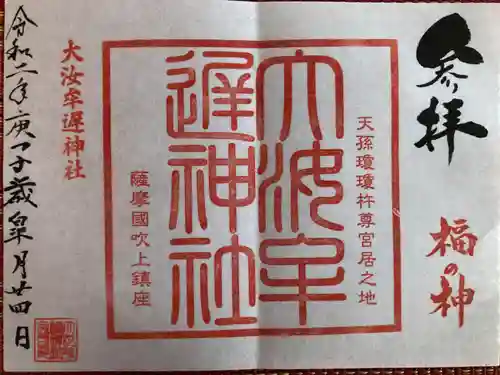 参拝
福の神
天孫瓊瓊杵尊宮居之地
大汝牟
遅神社
薩摩國吹上鎮座
大汝牟遅神社
令和二年庚子歳皐月廿四日